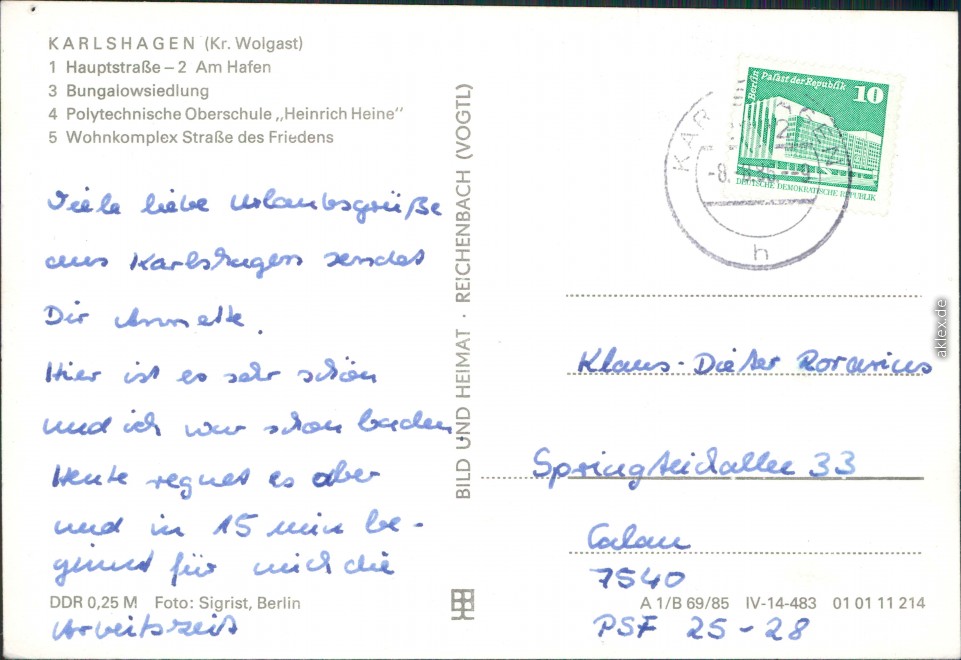 KARLSHAGEN (Kr. Wolgast)
1 Hauptstraße – 2 Am Hafen
3 Bungalowsiedlung
4 Polytechnische Oberschule „Heinrich Heine"
5 Wohnkomplex Straße des Friedens
Viele liebe Urlaubsgrüße
aus Karlshagen sendet
Dir Annette.
Hier ist es sehr schön
und ich war schon baden
Heute regnet es aber
und in 15 min be-
ginnt für mich die
Arbeitszeit
DDR 0,25 M Foto: Sigrist, Berlin
BILD UND HEIMAT · REICHENBACH (VOGTL)
Berlin Palast der Republik 10
DEUTSCHE DEMOKRATISCHE REPUBLIK
h
Klaus-Dieter Rorarius
Springteichallee 33
Calau
7540
PSF 25-28
A 1/B 69/85 IV-14-483 01 01 11 214
aklex.de